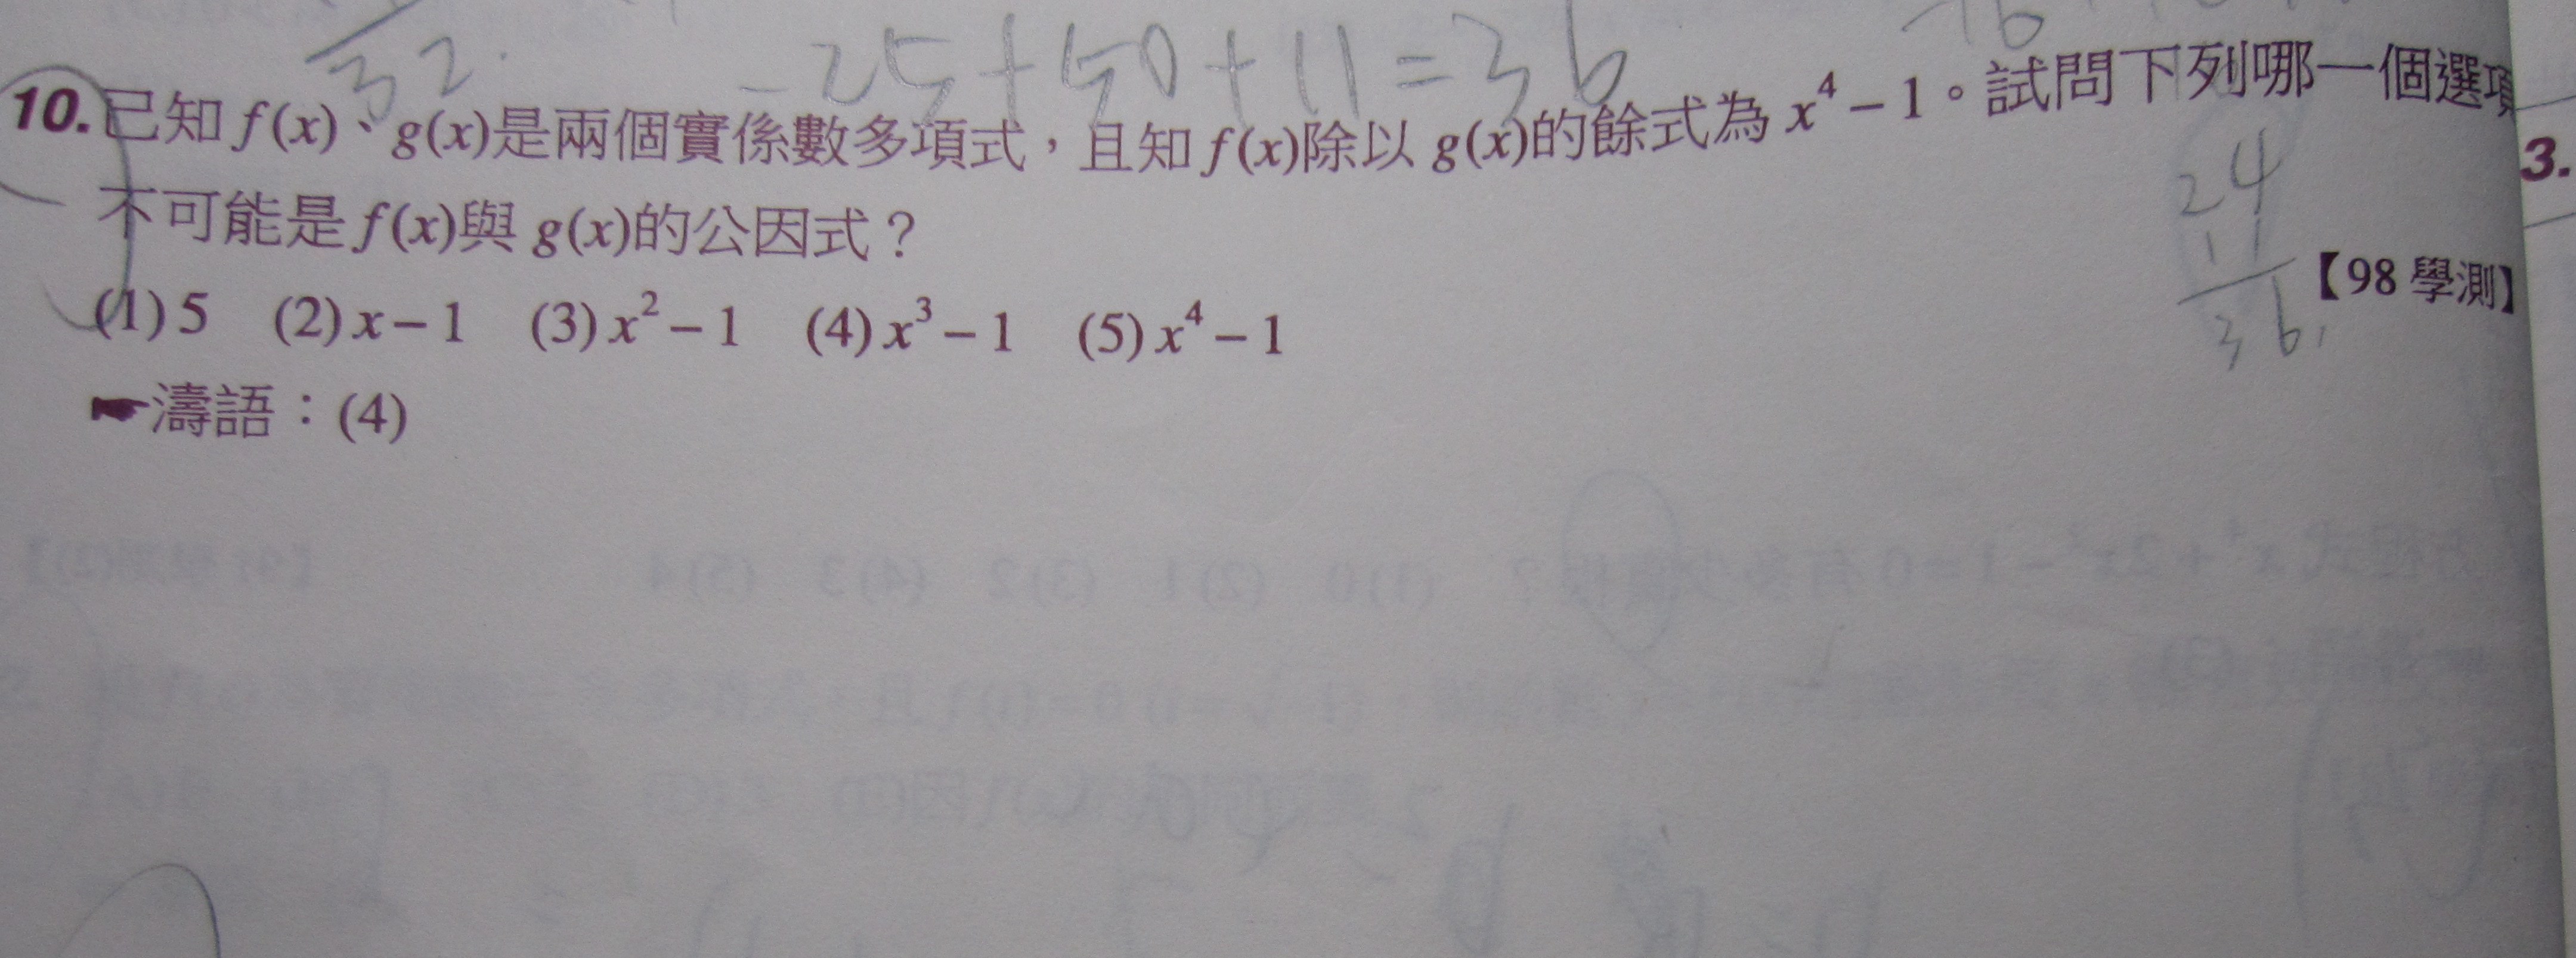 32
-25+50+11=36
10. 已知 f(x)、g(x)是兩個實係數多項式，且知 f(x)除以 g(x)的餘式為 x⁴ – 1。試問下列哪一個選項
3.
不可能是 f(x)與 g(x)的公因式？
24
11
36
【98 學測】
(1) 5 (2) x – 1 (3) x² – 1 (4) x³ – 1 (5) x⁴ – 1
☛濤語：(4)